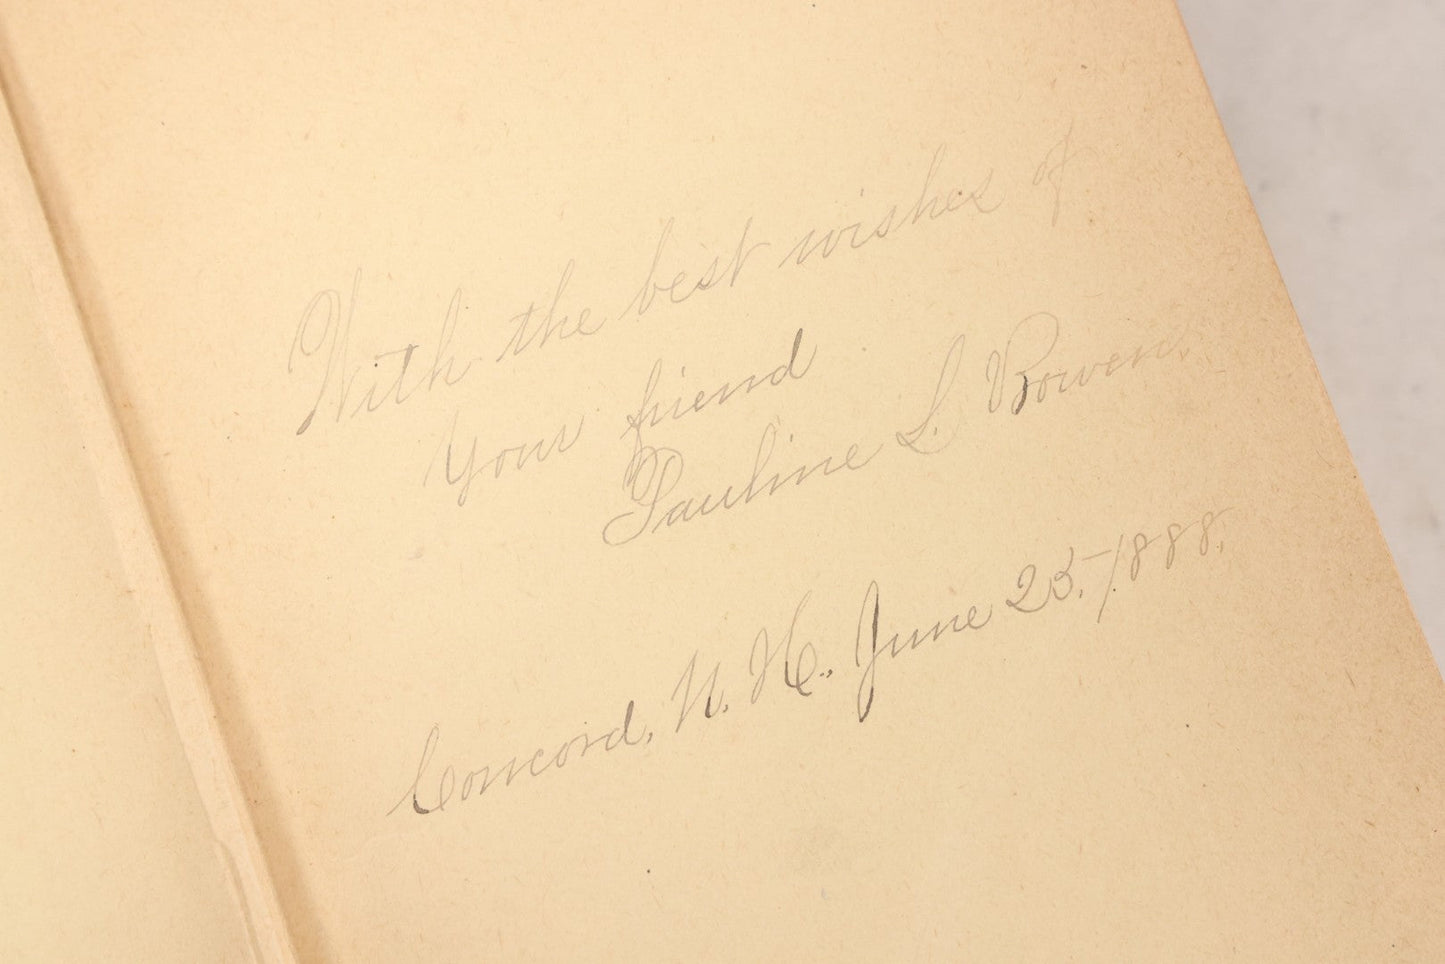 With the best wishes of
your friend
Pauline L. Bowen.
Concord, N. H., June 25, 1888.